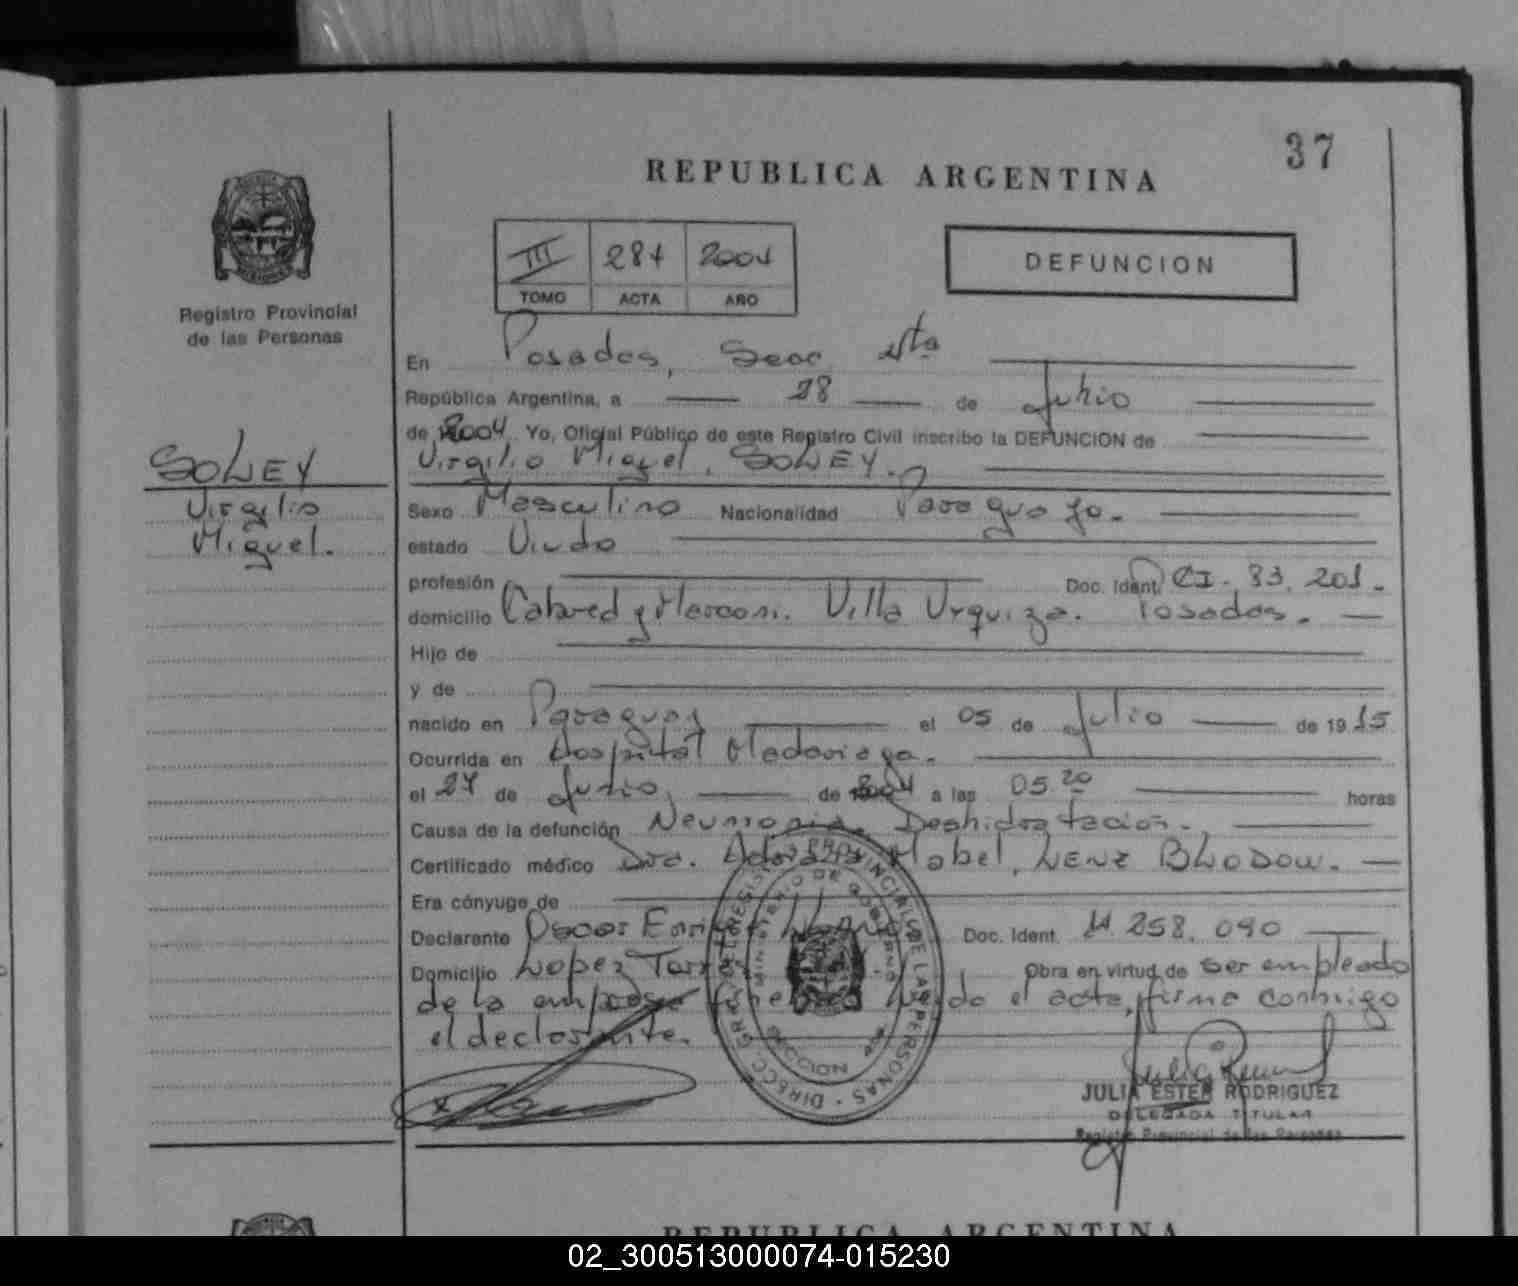 37
REPUBLICA ARGENTINA
III 287 2004
TOMO ACTA AÑO
DEFUNCION
Registro Provincial
de las Personas
En Posadas, Secc 4ta
República Argentina, a 28 de Julio
de 2004. Yo, Oficial Público de este Registro Civil inscribo la DEFUNCION de
Virgilio Miguel, SOLEY.
SOLEY
Virgilio
Miguel.
Sexo Masculino Nacionalidad Paraguayo.
estado Viudo
profesión Doc. Ident. CI. 83.201.
domicilio Cabred y Marconi. Villa Urquiza. Posadas.
Hijo de
y de
nacido en Paraguay el 05 de Julio de 1915
Ocurrida en Hospital Madariaga.
el 27 de Julio, de 2004 a las 05.20 horas
Causa de la defunción Neumonia. Deshidratación.
Certificado médico Dra. Mabel, LENZ BLODOW.
Era cónyuge de
Declarante Oscar Doc. Ident. 14.258.090
Domicilio Lopez Torres Obra en virtud de ser empleado
de la empresa funebre Leído el acta, firma conmigo
el declarante.
DIRECC. GRAL. DEL REGISTRO PROVINCIAL DE LAS PERSONAS
MINISTERIO DE GOBIERNO
SECCION 4ta
JULIA ESTER RODRIGUEZ
DELEGADA TITULAR
Registro Provincial de las Personas
REPUBLICA ARGENTINA
02_300513000074-015230